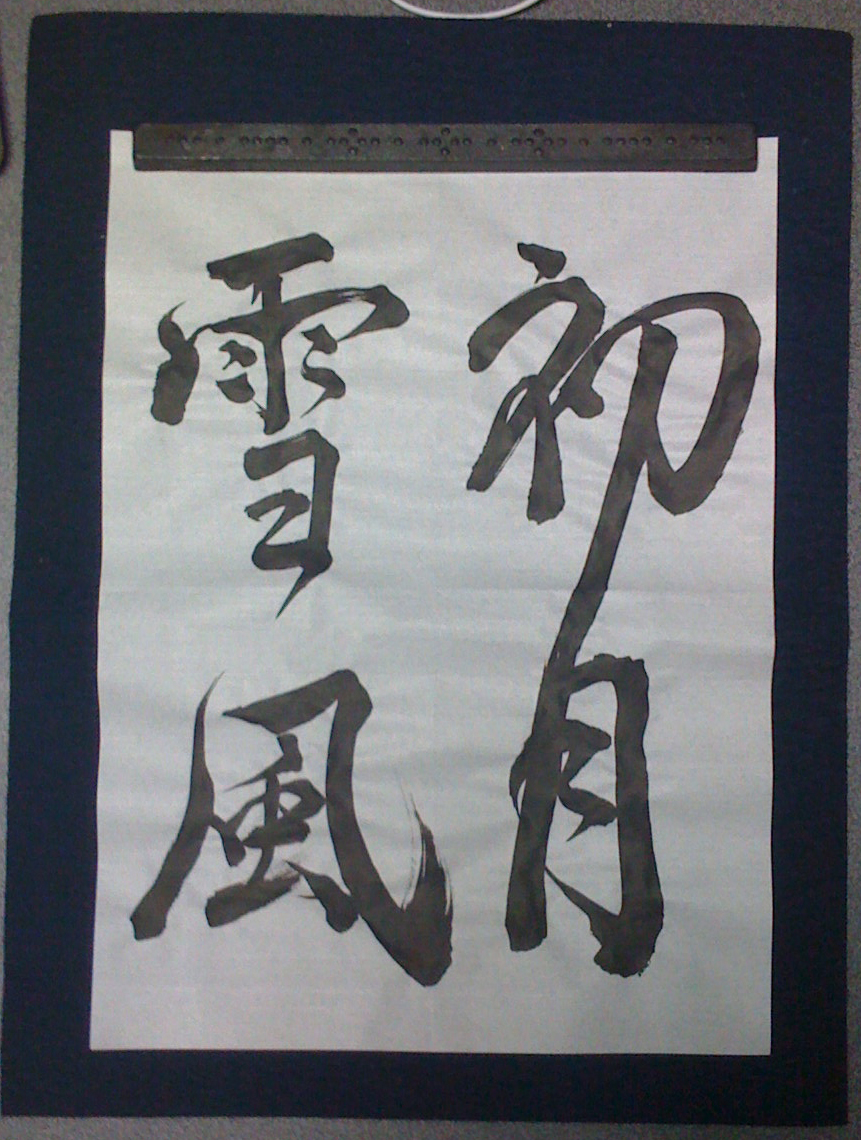 初月
雪風